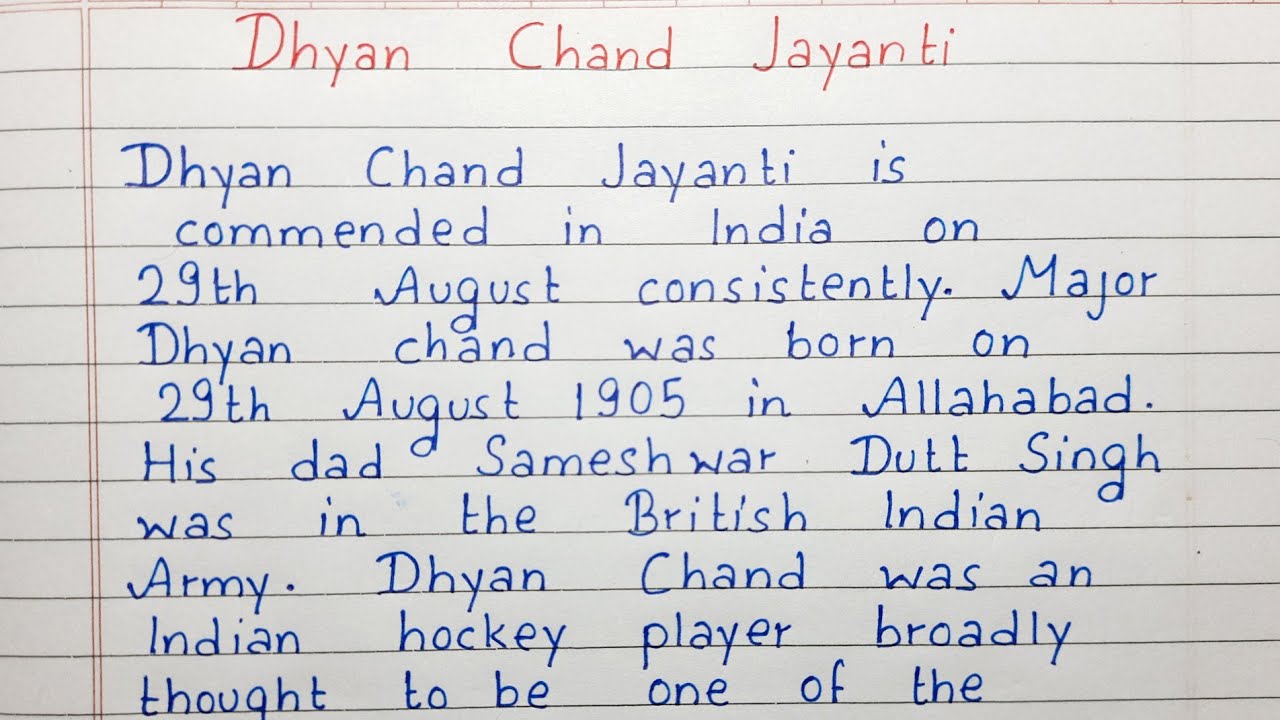 Dhyan Chand Jayanti
Dhyan Chand Jayanti is
commended in India on
29th August consistently. Major
Dhyan chand was born on
29th August 1905 in Allahabad.
His dad Sameshwar Dutt Singh
was in the British Indian
Army. Dhyan Chand was an
Indian hockey player broadly
thought to be one of the